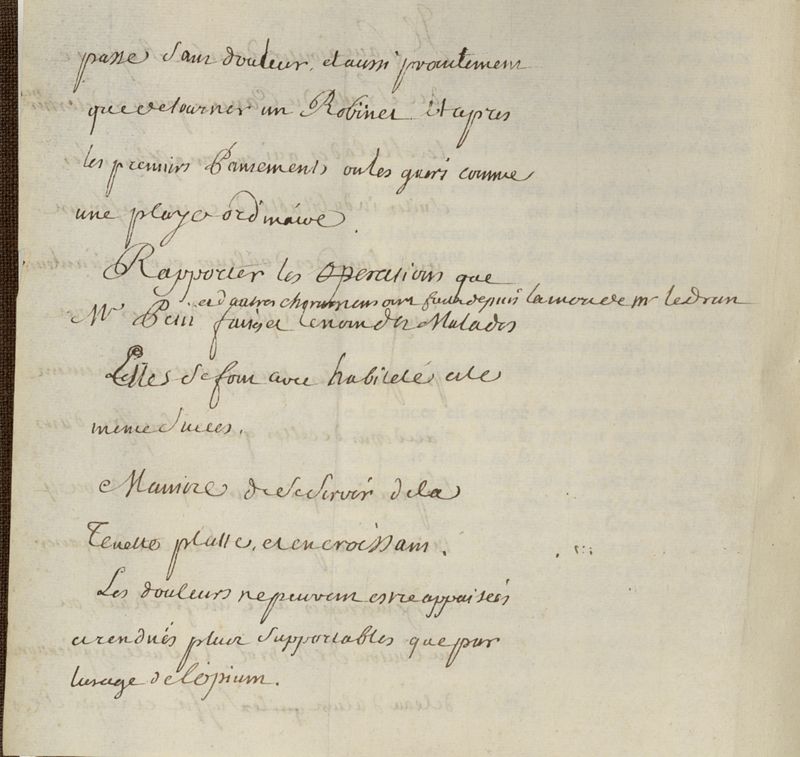 passe sans douleur, et aussi promtement
que de tourner un Robinet Et apres
les premiers Pansements on les gueri comme
une playe ordinaire.
Rapporter les operations que
et d'autres chirurgiens ont fait depuis la mort de mr ledran
Mr Petit faites et le nom des Malades
Elles se font avec habileté et le
meme succes.
Maniere de se servir de la
Tenette platte, et en croissant.
Les douleurs ne peuvent estre appaisées
et rendues plus supportables que par
lusage de lopium.